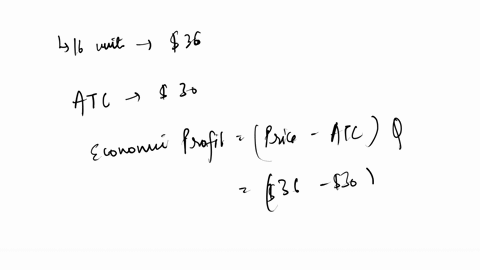 ↳ 16 unit → $36
ATC → $30
Economi Profit = (Price - ATC) Q
= ($36 - $30)